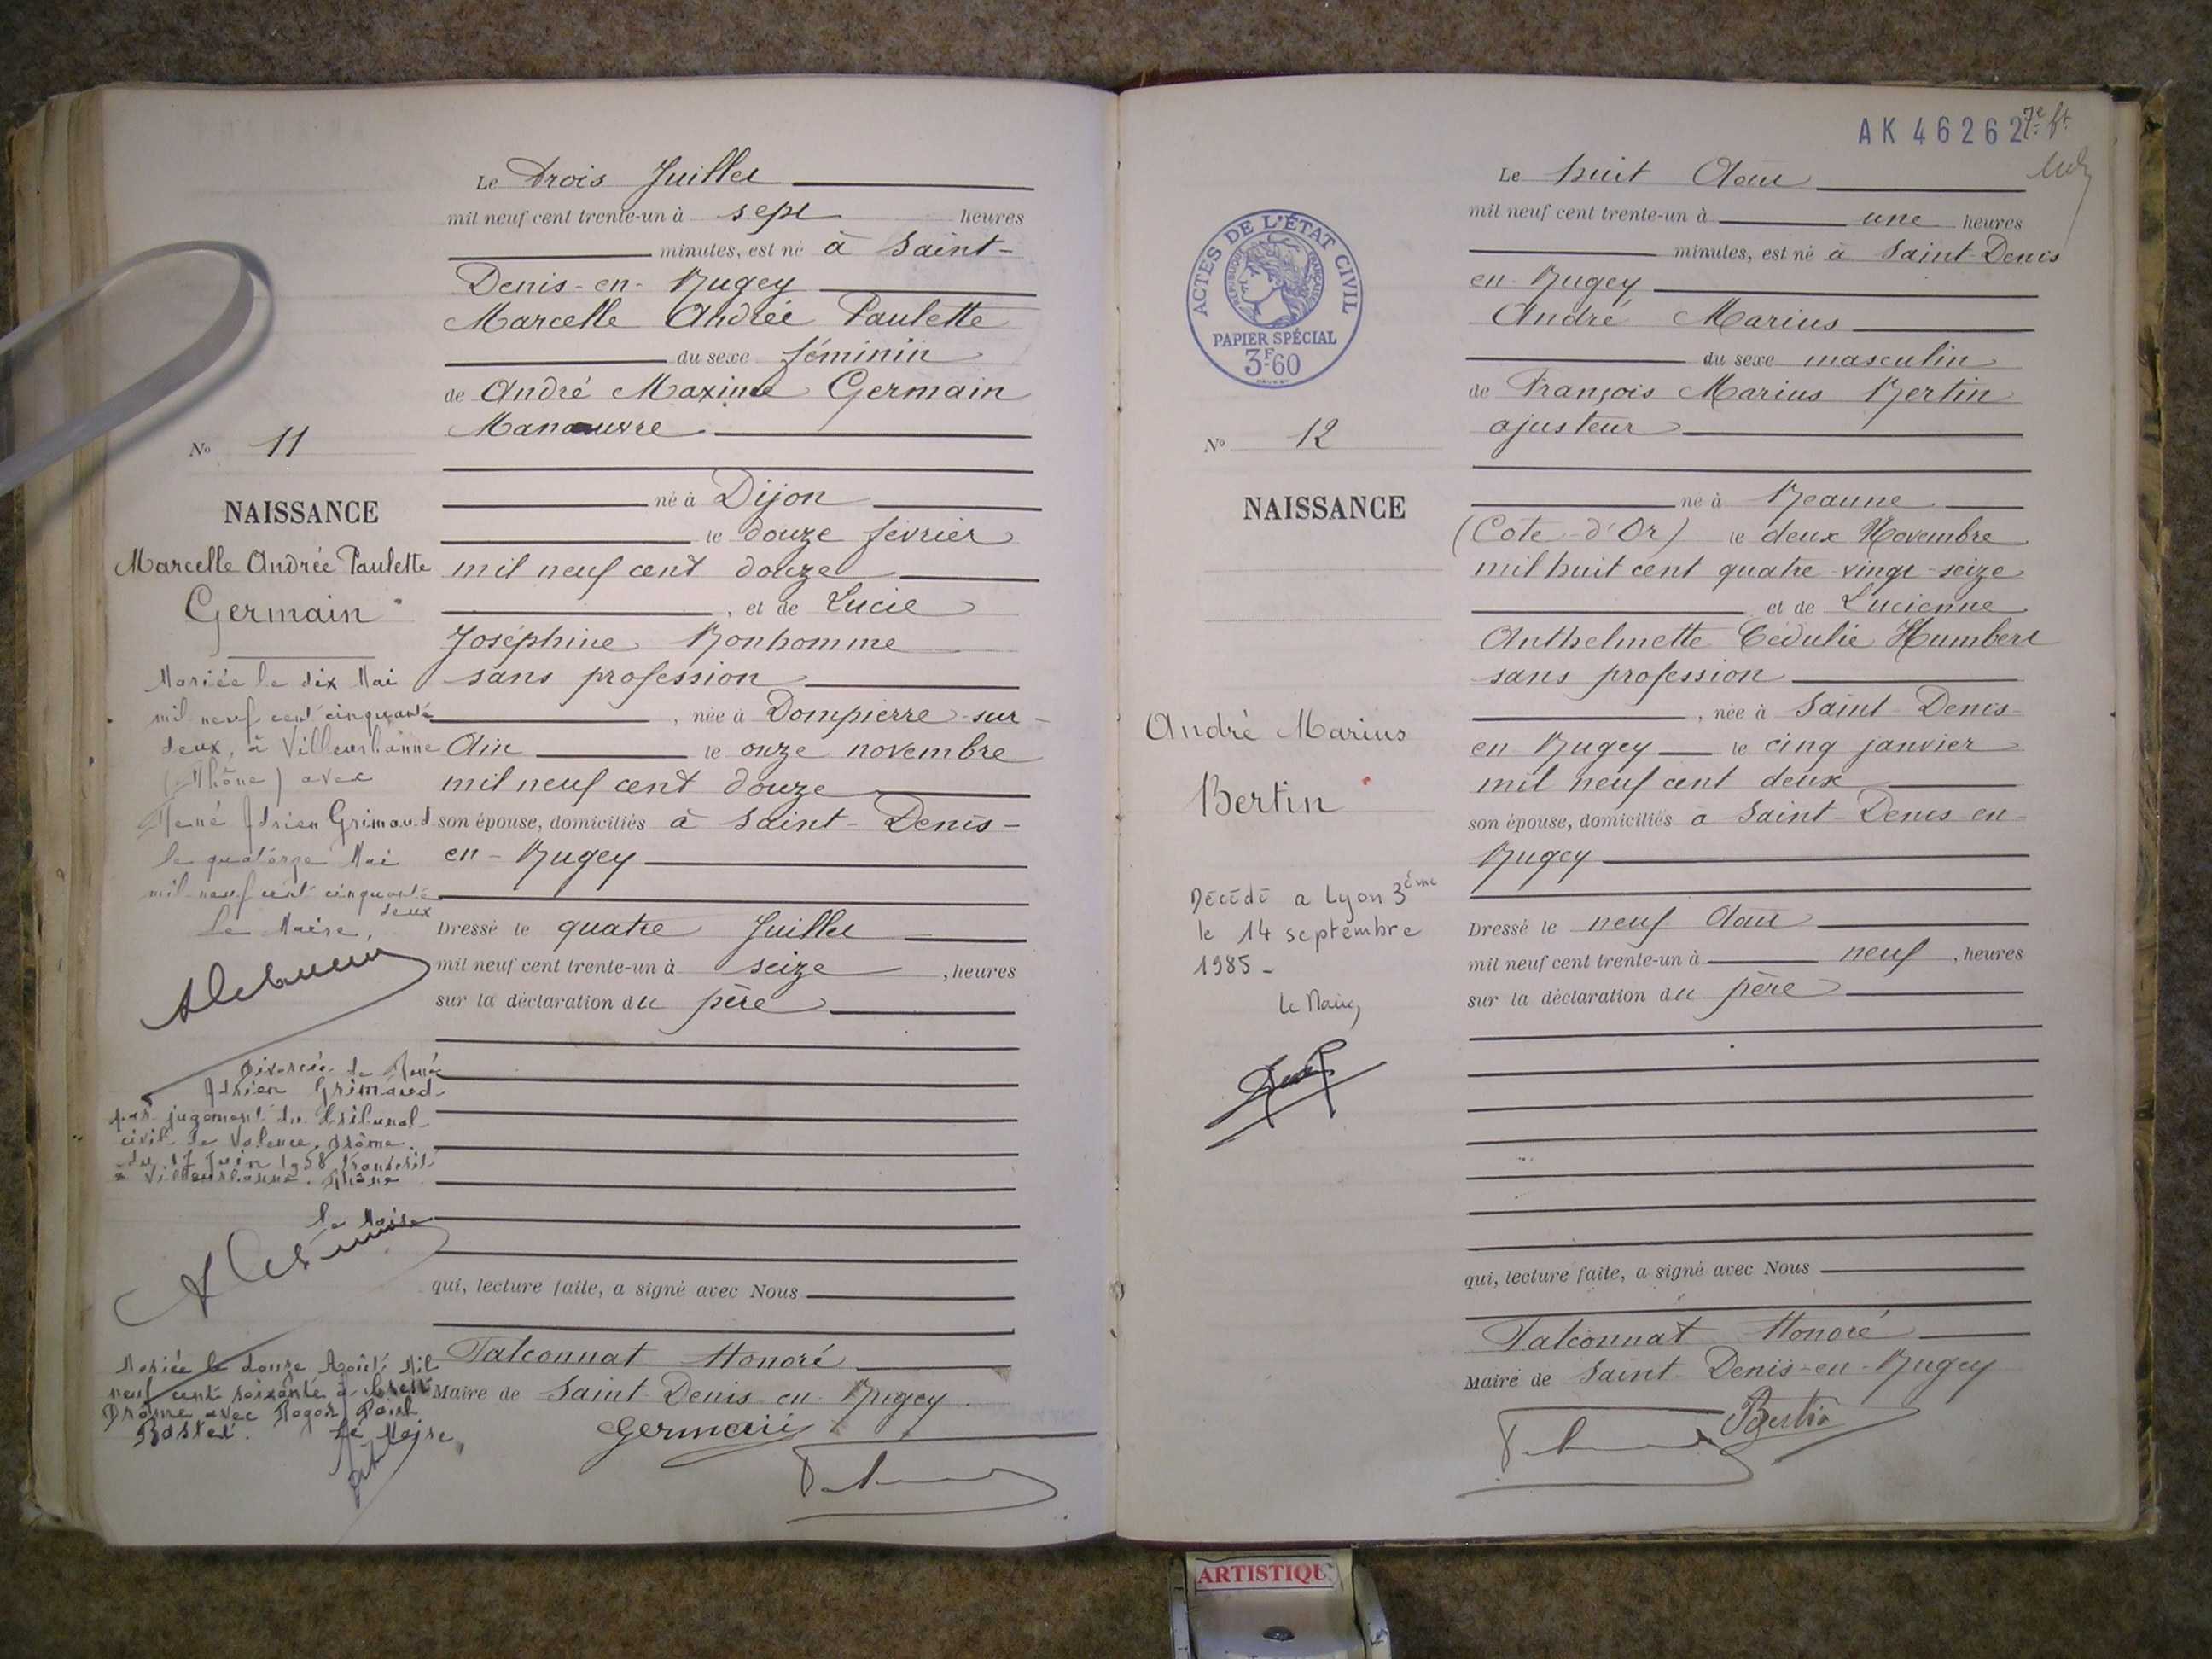 Le Trois Juillet
mil neuf cent trente-un à sept heures
minutes, est né à Saint-
Denis-en-Bugey
Marcelle Andrée Paulette
du sexe féminin
de André Maxime Germain
Manœuvre
né à Dijon
le douze février
mil neuf cent douze
, et de Lucie
Joséphine Bonhomme
sans profession
, née à Dompierre-sur-
Ain le onze novembre
mil neuf cent douze
son épouse, domiciliés à Saint-Denis-
en-Bugey
Dressé le quatre Juillet
mil neuf cent trente-un à seize, heures
sur la déclaration du père
qui, lecture faite, a signé avec Nous
Falconnat Honoré
Maire de Saint-Denis-en-Bugey
Germain
No 11
NAISSANCE
Marcelle Andrée Paulette
Germain
Mariée le dix Mai
mil neuf cent cinquante
deux, à Villeurbanne
(Rhône) avec
René Adrien Grimaud
le quatorze Mai
mil neuf cent cinquante
deux
Le Maire,
Divorcée de René
Adrien Grimaud
par jugement du tribunal
civil de Valence, Drôme
du 17 Juin 1958 transcrit
à Villeurbanne. Rhône
Le Maire
Mariée le douze Août Mil
neuf cent soixante à
Drôme avec Roger Paul
Le Maire,
AK 46262
7e ft
ACTES DE L'ÉTAT CIVIL
RÉPUBLIQUE FRANÇAISE
PAPIER SPÉCIAL
3F60
No 12
NAISSANCE
André Marius
Bertin
Décédé a Lyon 3ème
le 14 septembre
1985-
Le Maire,
Le huit Août
mil neuf cent trente-un à une heures
minutes, est né à Saint-Denis
en-Bugey
André Marius
du sexe masculin
de François Marius Bertin
ajusteur
né à Beaune
(Cote-d'Or) le deux Novembre
mil huit cent quatre-vingt-seize
et de Lucienne
Anthelmette Cédulie Humbert
sans profession
, née à Saint-Denis-
en Bugey le cinq janvier
mil neuf cent deux
son épouse, domiciliés à Saint-Denis-en-
Bugey
Dressé le neuf Août
mil neuf cent trente-un à neuf, heures
sur la déclaration du père
qui, lecture faite, a signé avec Nous
Falconnat Honoré
Maire de Saint-Denis-en-Bugey
Bertin
ARTISTIQU